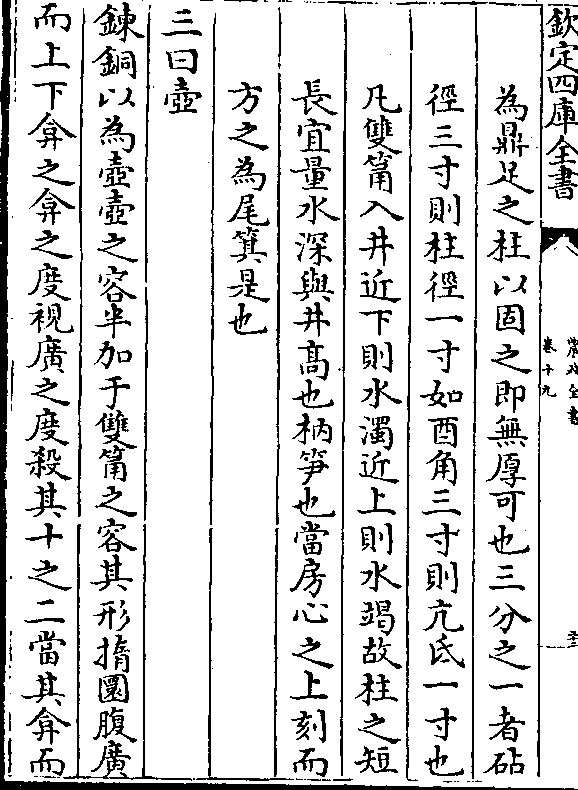 欽定四庫全書
農政全書
卷十九
為鼎足之柱以固之即無厚可也三分之一者砧
徑三寸則柱徑一寸如酉角三寸則亢氐一寸也
凡雙筩入井近下則水濁近上則水竭故柱之短
長宜量水深與井髙也枘笋也當房心之上刻而
方之為尾箕是也
三曰壺
鍊銅以為壺壺之容半加于雙筩之容其形撱圜腹廣
而上下弇之弇之度視廣之度殺其十之二當其弇而